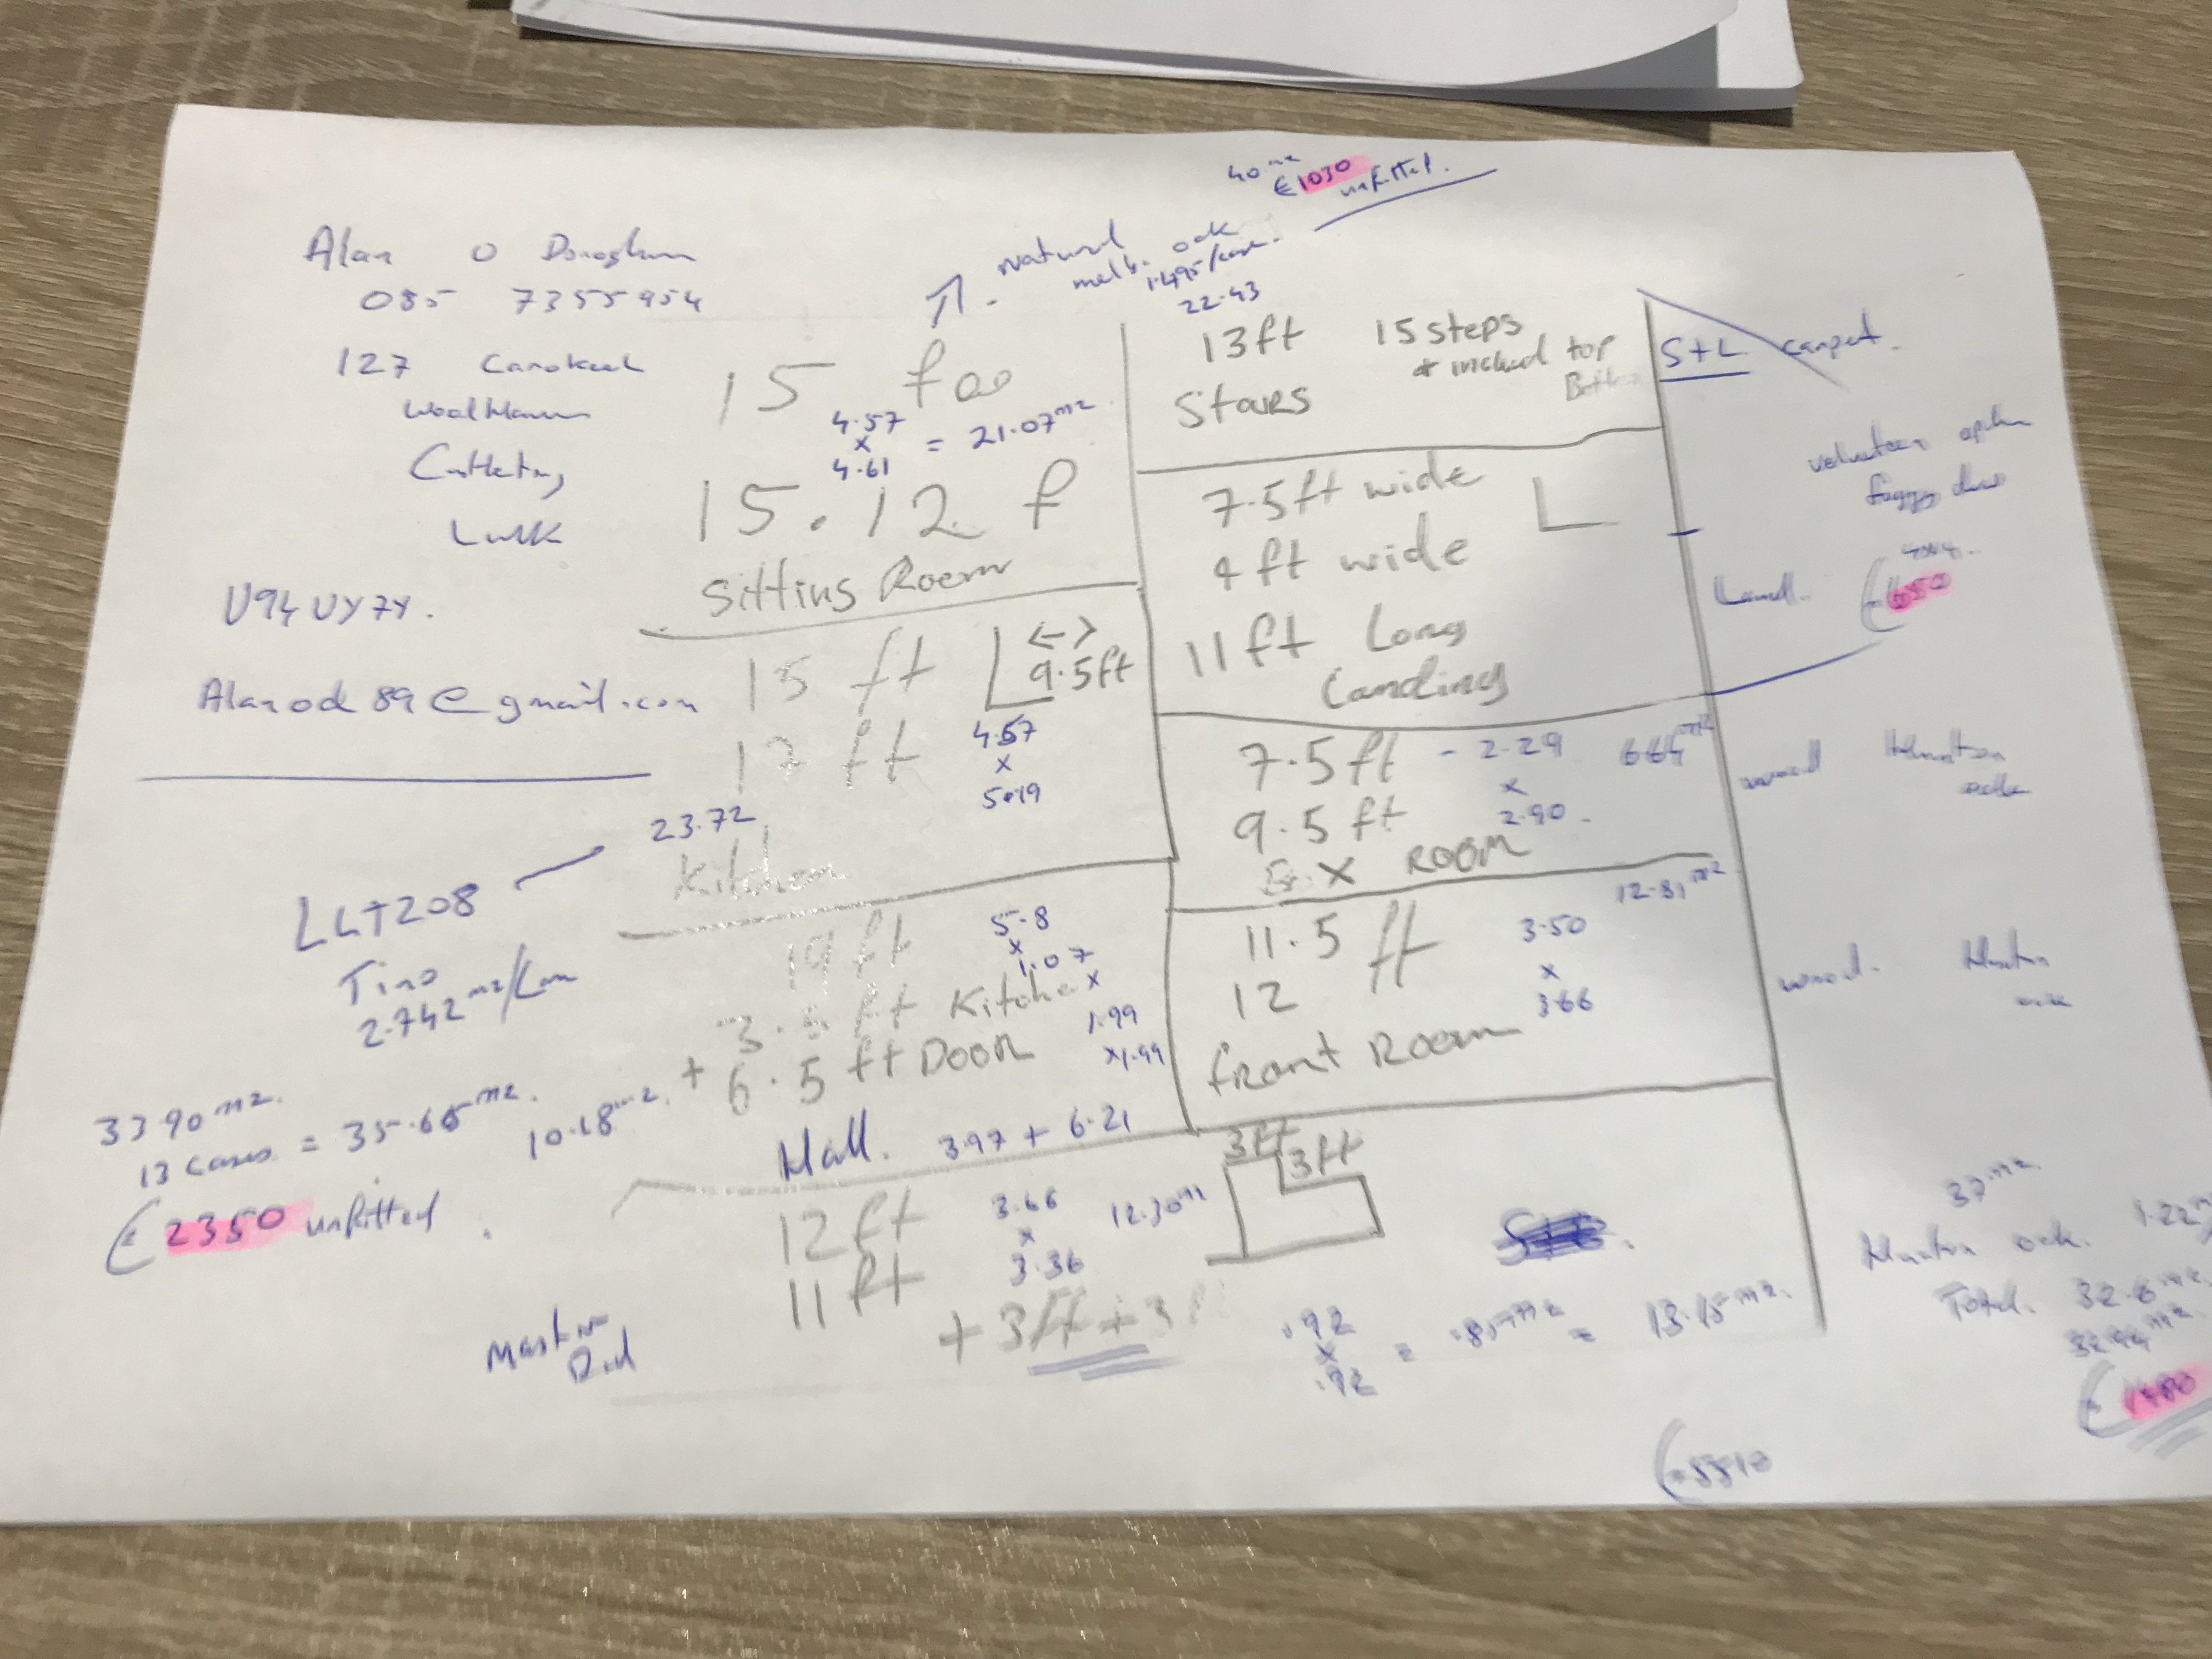 40 m2
€1030 unfitted.
Natural
melb. oak
1.495/case.
22.43
Alan O Donoghue
085 7355954
127
Lusk
U94 UY7Y.
Alanod89@gmail.com
15 foo
4.57
x
4.61
= 21.07m2
15.12 f
Sitting Room
13ft 15 steps
+ includ top
Stairs
S+L carpet.
7.5ft wide L
4 ft wide
11ft Long
Landing
Land. €650
15 ft
<->
9.5ft
17 ft
4.57
x
5.19
23.72
Kitchen
7.5ft - 2.29 6.64m2
x
9.5 ft 2.90
Box Room
wood
oak
LLT208
Tino
2.742 m2/
19 ft
5.8
x
1.07
x
ft Kitchen
1.99
x1.99
+ 6.5 ft Door
Hall. 3.97 + 6.21
10.18m2.
11.5 ft
12.81m2
3.50
x
3.66
12
front Room
wood.
oak
33.90m2.
13 cases = 35.65m2.
€2350 unfitted.
12 ft
11 ft
3.66
x
3.36
12.30m2
3ft
3ft
+ 3ft + 3
.92
x
.92
= = 13.15m2.
Master
37m2
oak. 1.22m
Total. 32.6m2
32.94m2